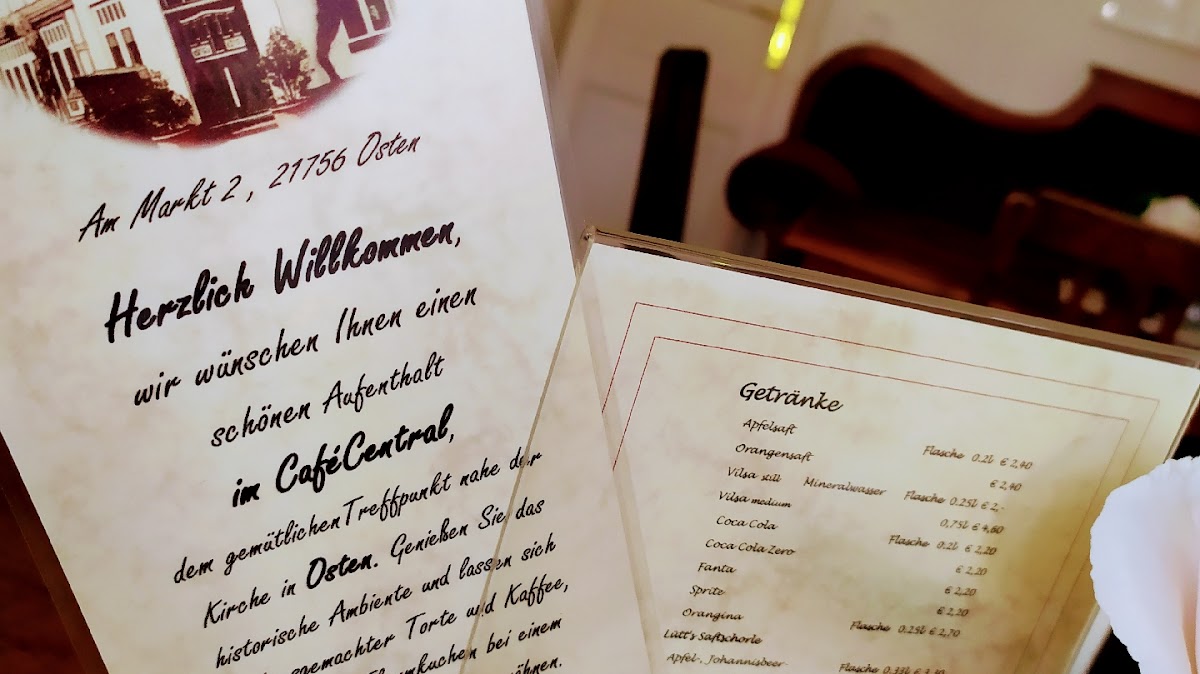 Am Markt 2, 21756 Osten
Herzlich Willkommen,
wir wünschen Ihnen einen
schönen Aufenthalt
im CaféCentral,
dem gemütlichen Treffpunkt nahe der
Kirche in Osten. Genießen Sie das
historische Ambiente und lassen sich
gemachter Torte und Kaffee,
kuchen bei einem
Getränke
Apfelsaft Flasche 0,2l € 2,40
Orangensaft € 2,40
Vilsa still Mineralwasser Flasche 0,25l € 2,-
Vilsa medium 0,75l € 4,60
Coca Cola Flasche 0,2l € 2,20
Coca Cola Zero € 2,20
Fanta € 2,20
Sprite € 2,20
Orangina Flasche 0,25l € 2,70
Lütt's Saftschorle
Apfel-, Johannisbeer- Flasche 0,33l €